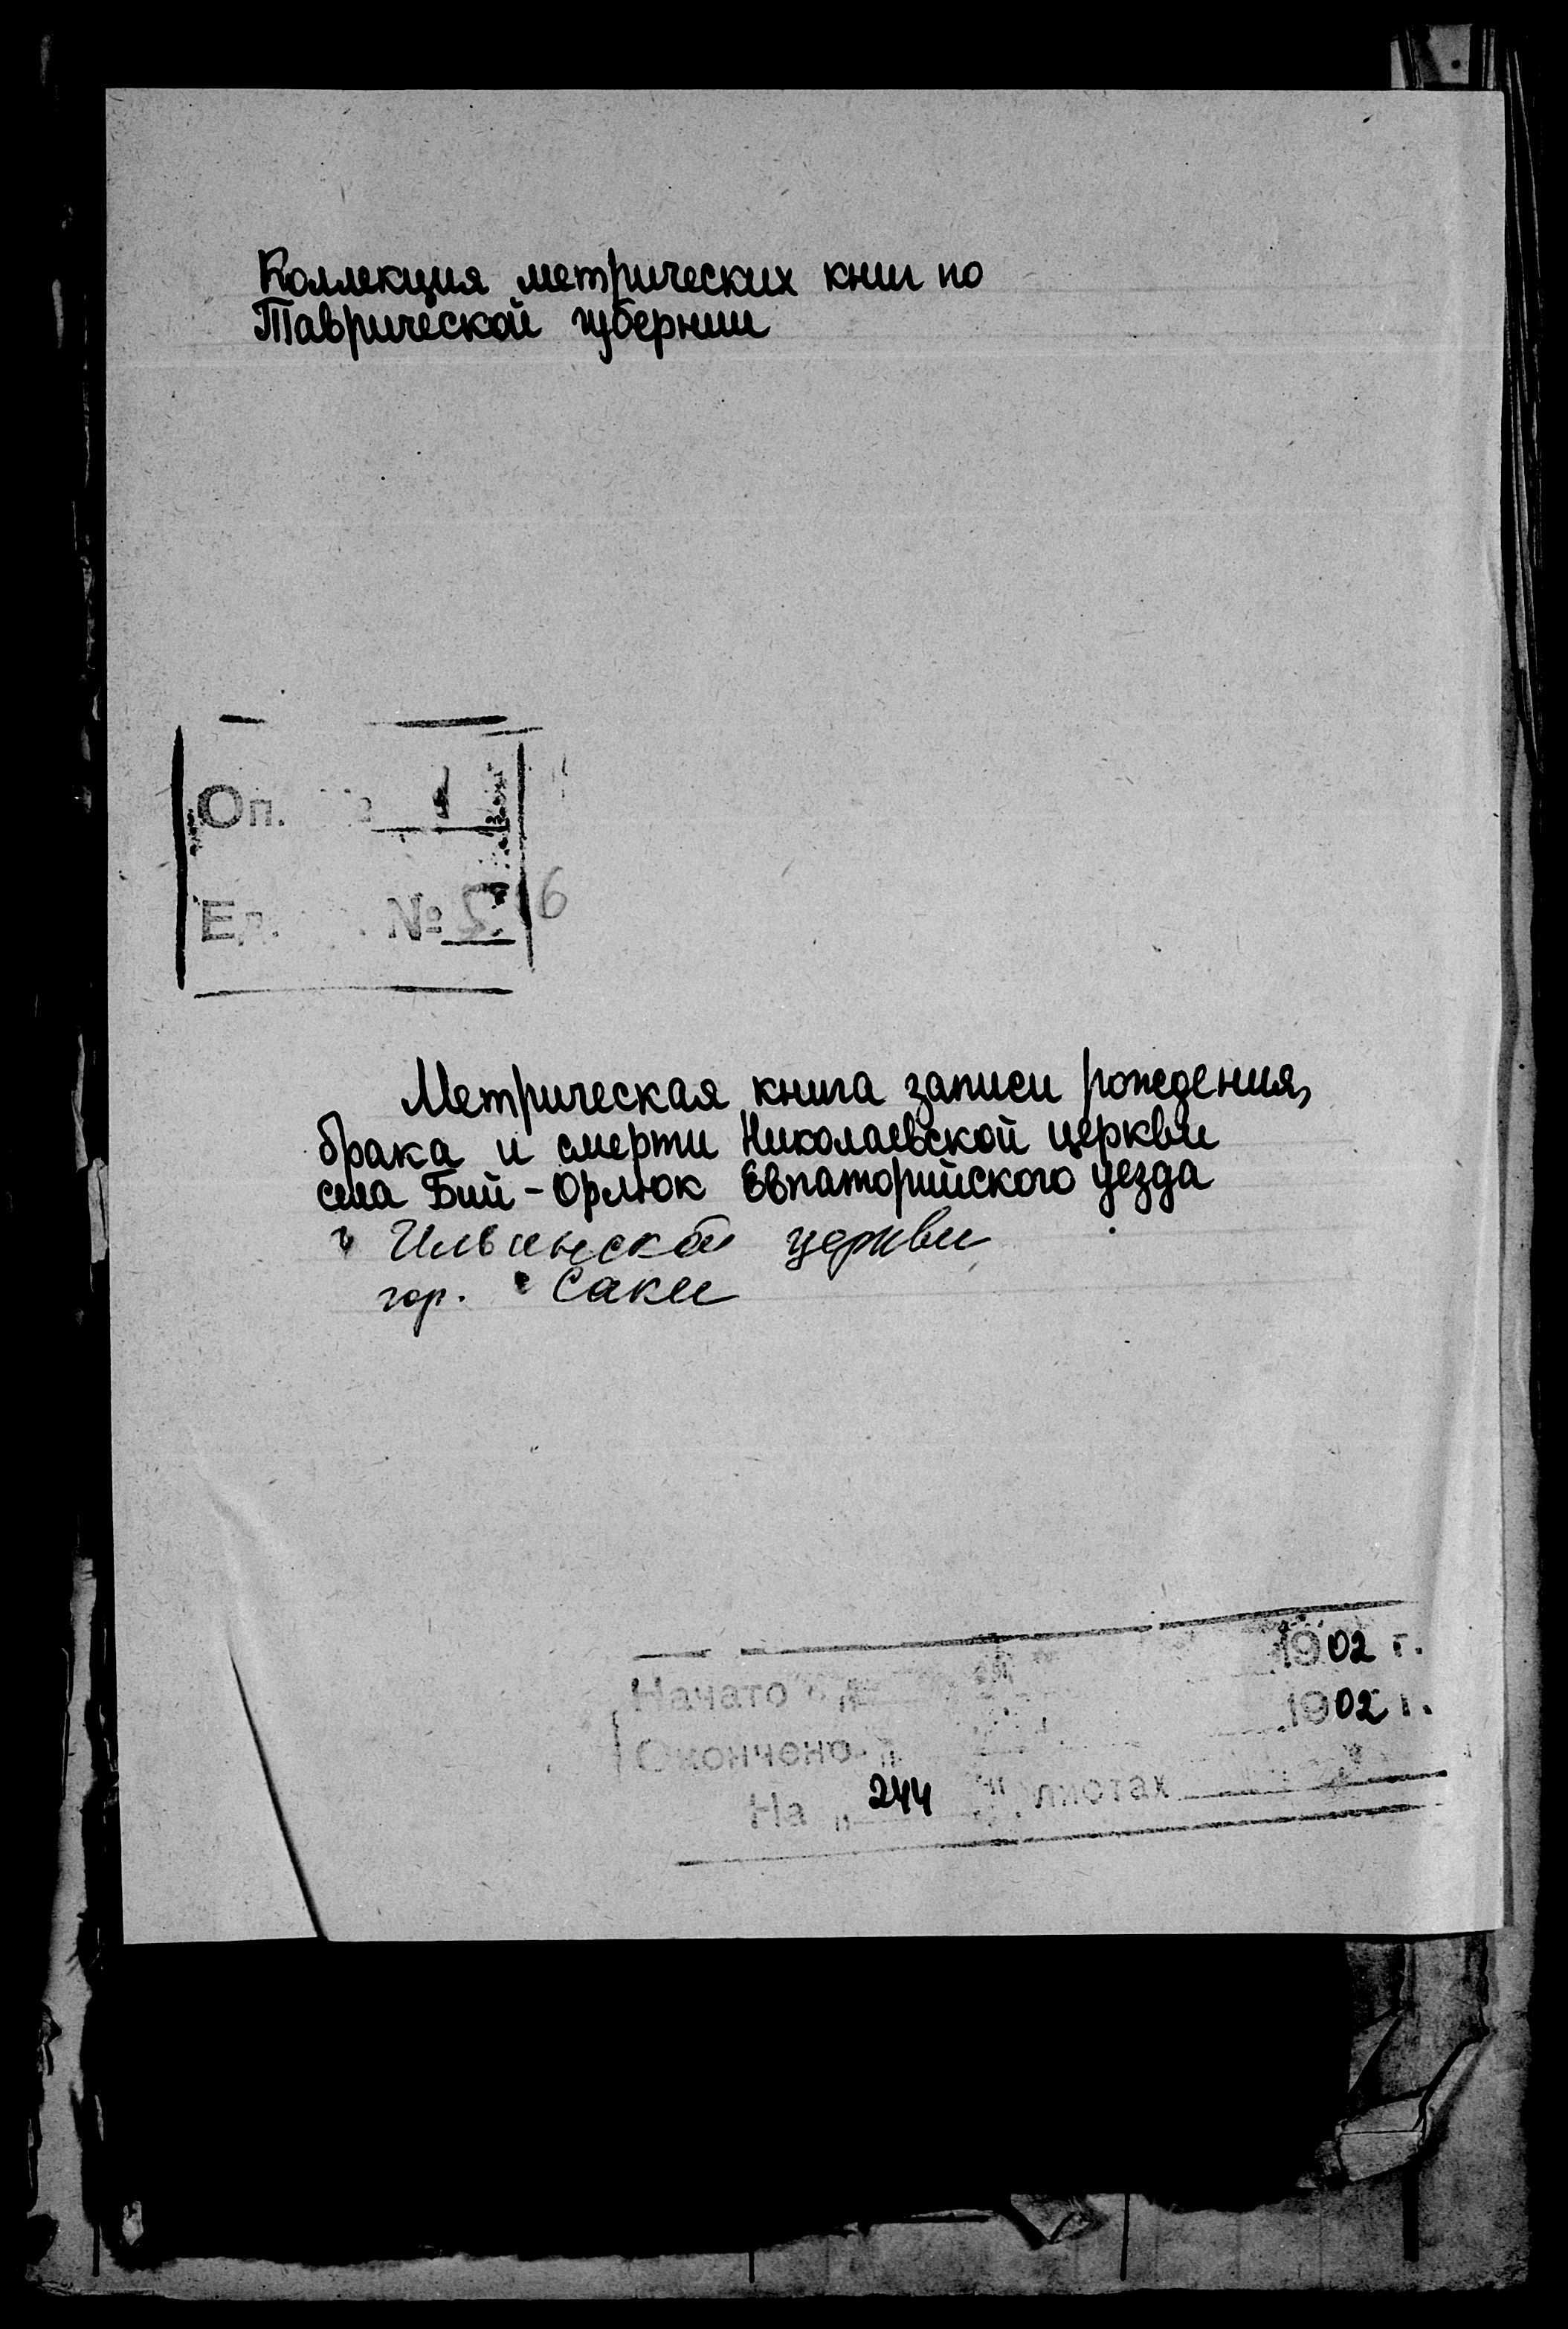 Коллекция метрических книг по
Таврической губернии
Оп. № 1
Ед. №
Метрическая книга записи рождения,
брака и смерти Николаевской церкви
села Бий-Орлюк Евпаторийского уезда
и Ильинской церкви
гор. Саки
1902 г.
Начато
1902 г.
Окончено
На „ 244 " листах